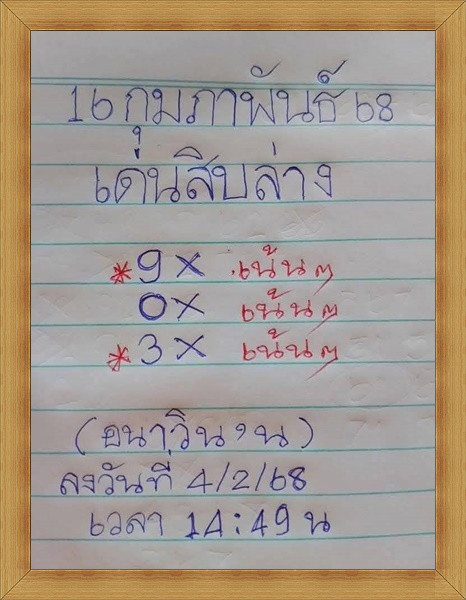 16 กุมภาพันธ์ 68
เด่นสิบล่าง
*9x เน้นๆ
0x เน้นๆ
*3x เน้นๆ
ลงวันที่ 4/2/68
เวลา 14:49 น